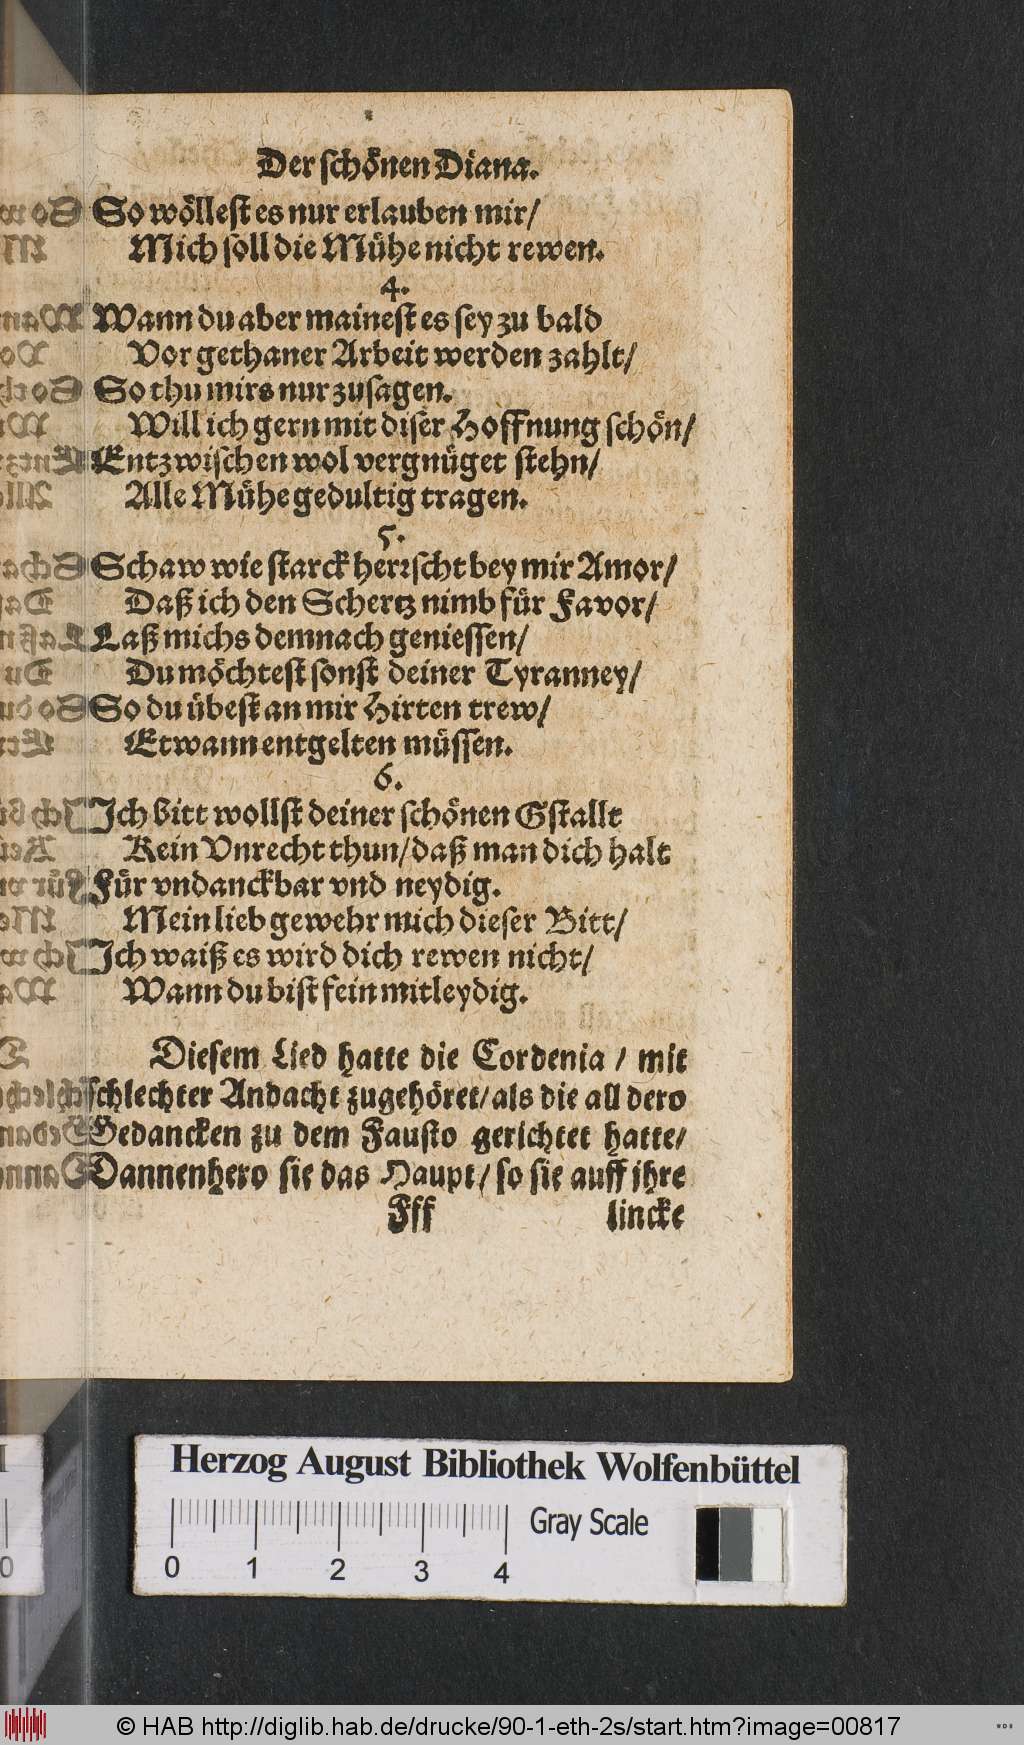 Der schönen Diana.
So wöllest es nur erlauben mir/
Mich soll die Mühe nicht rewen.
4.
Wann du aber mainest es sey zu bald
Vor gethaner Arbeit werden zahlt/
So thu mirs nur zusagen.
Will ich gern mit diser Hoffnung schön/
Entzwischen wol vergnüget stehn/
Alle Mühe gedultig tragen.
5.
Schaw wie starck herrscht bey mir Amor/
Daß ich den Schertz nimb für Favor/
Laß michs demnach geniessen/
Du möchtest sonst deiner Tyranney/
So du übest an mir Hirten trew/
Etwann entgelten müssen.
6.
Ich bitt wollst deiner schönen Gstallt
Kein Vnrecht thun/ daß man dich halt
Für vndanckbar vnd neydig.
Mein lieb gewehr mich dieser Bitt/
Ich waiß es wird dich rewen nicht/
Wann du bist fein mitleydig.
Diesem Lied hatte die Cordenia / mit
schlechter Andacht zugehöret/ als die all dero
Gedancken zu dem Fausto gerichtet hatte/
Dannenhero sie das Haupt/ so sie auff ihre
Fff
lincke
Herzog August Bibliothek Wolfenbüttel
Gray Scale
0 1 2 3 4
© HAB http://diglib.hab.de/drucke/90-1-eth-2s/start.htm?image=00817